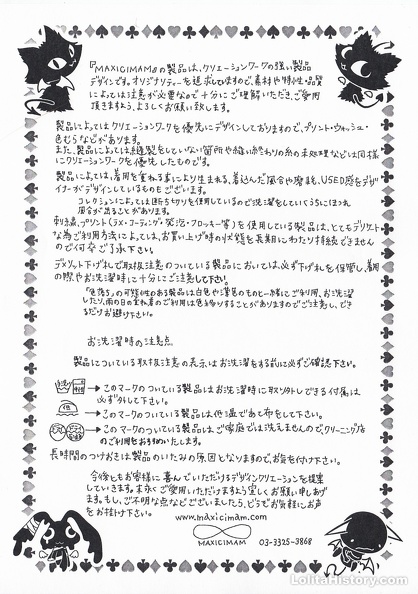 『MAXICIMAM』の製品は、クリエーションワークの強い製品
デザインです。オリジナリティーを追求していますので、素材や特性・品質
によっては注意が必要なので十分にご理解いただき、ご愛用
頂きますよう、よろしくお願い致します。
製品によってはクリエーションワークを優先にデザインしておりますので、プリント・ウォッシュ・
色むらなどがあります。
また、製品によっては縫製をしていない箇所や縫い終わりの糸の未処理なども同様
にクリエーションワークを優先したものです。
製品によっては、着用を重ねる事により生まれる、着込んだ風合や磨耗、USED感をデザ
イナーがデザインしているものもございます。
コレクションによっては断ち切りを使用しているので洗濯をしていくうちにほつれ
風合が出ることがあります。
刺繍、プリント(ラメ・コーティング・発泡・フロッキー等)を使用している製品は、とてもデリケート
な為ご利用方法によっては、お買い上げ時の状態を長期にわたり持続できません
ので何卒ご了承下さい。
デメリット下げ札で取扱注意のついている製品においては必ず下げ札を保管し、着用
の際やお洗濯時に十分にご注意して下さい。
「色落ち」の可能性のある製品は白色や淡色のものと一緒にご利用、お洗濯
したり、雨の日の着用はご利用は色移りすることがありますのでご注意し、でき
るだけお避け下さい。
お洗濯時の注意点
製品についている取扱注意の表示はお洗濯をする前に必ずご確認下さい。
→このマークのついている製品はお洗濯時に取りはずしできる付属は
必ず外して下さい。
低 →このマークのついている製品は低温であて布をして下さい。
→このマークのついている製品はご家庭では洗えませんので、クリーニング店
のご利用をおすすめいたします。
長時間のつけおきは製品のいたみの原因となりますので、お気を付け下さい。
今後ともお客様に喜んでいただけるデザインクリエーションを提案
していきます。末永くご愛用いただけますよう宜しくお願い申しあげ
ます。もし、ご不明な点などございましたら、どうぞお気軽にお声
をお掛け下さい。
www.maxicimam.com
MAXICIMAM 03-3325-3868
LolitaHistory.com